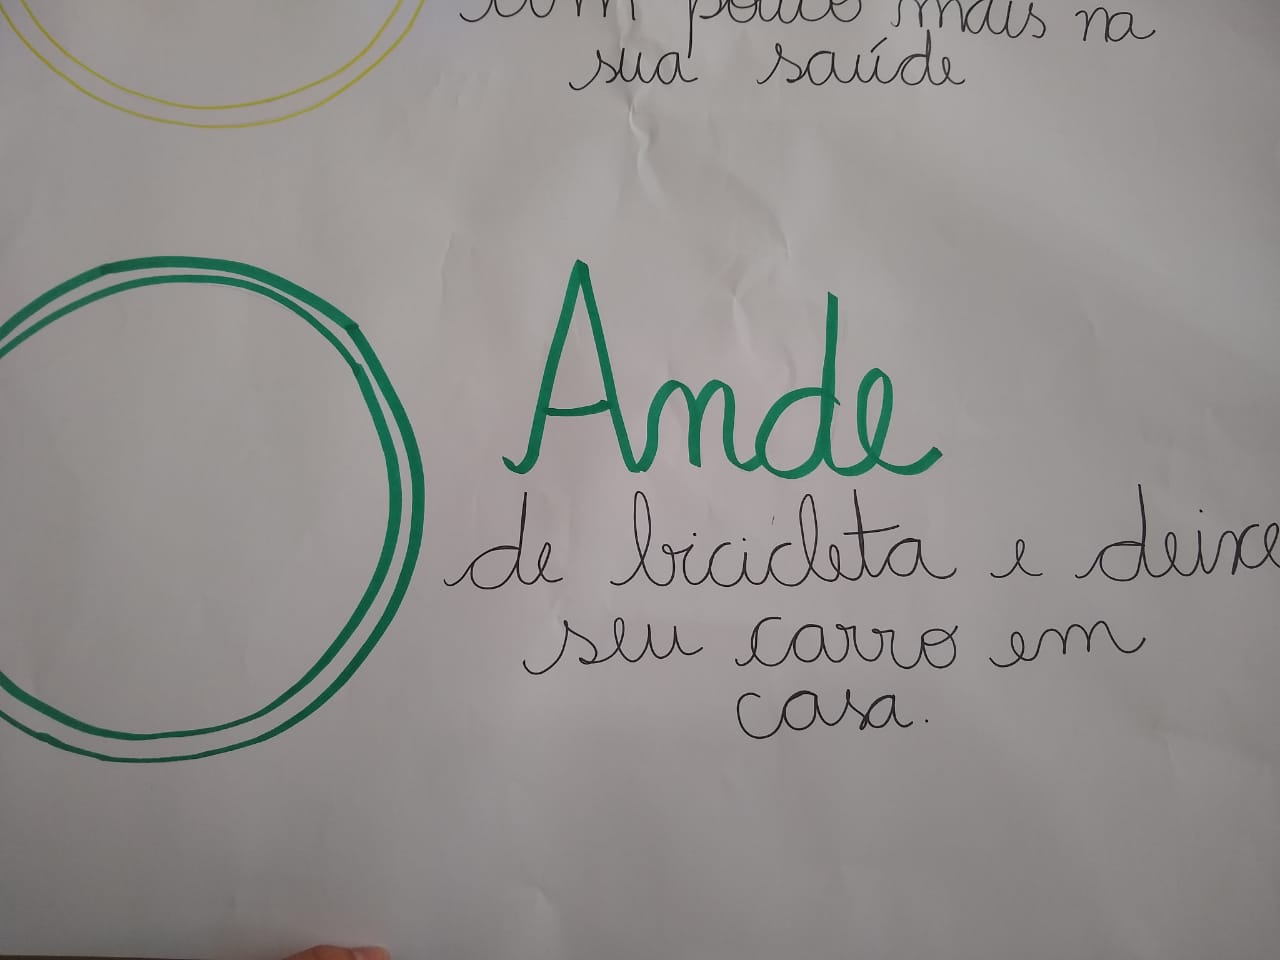 pouco mais na
sua saúde
Ande
de bicicleta e deixe
seu carro em
casa.